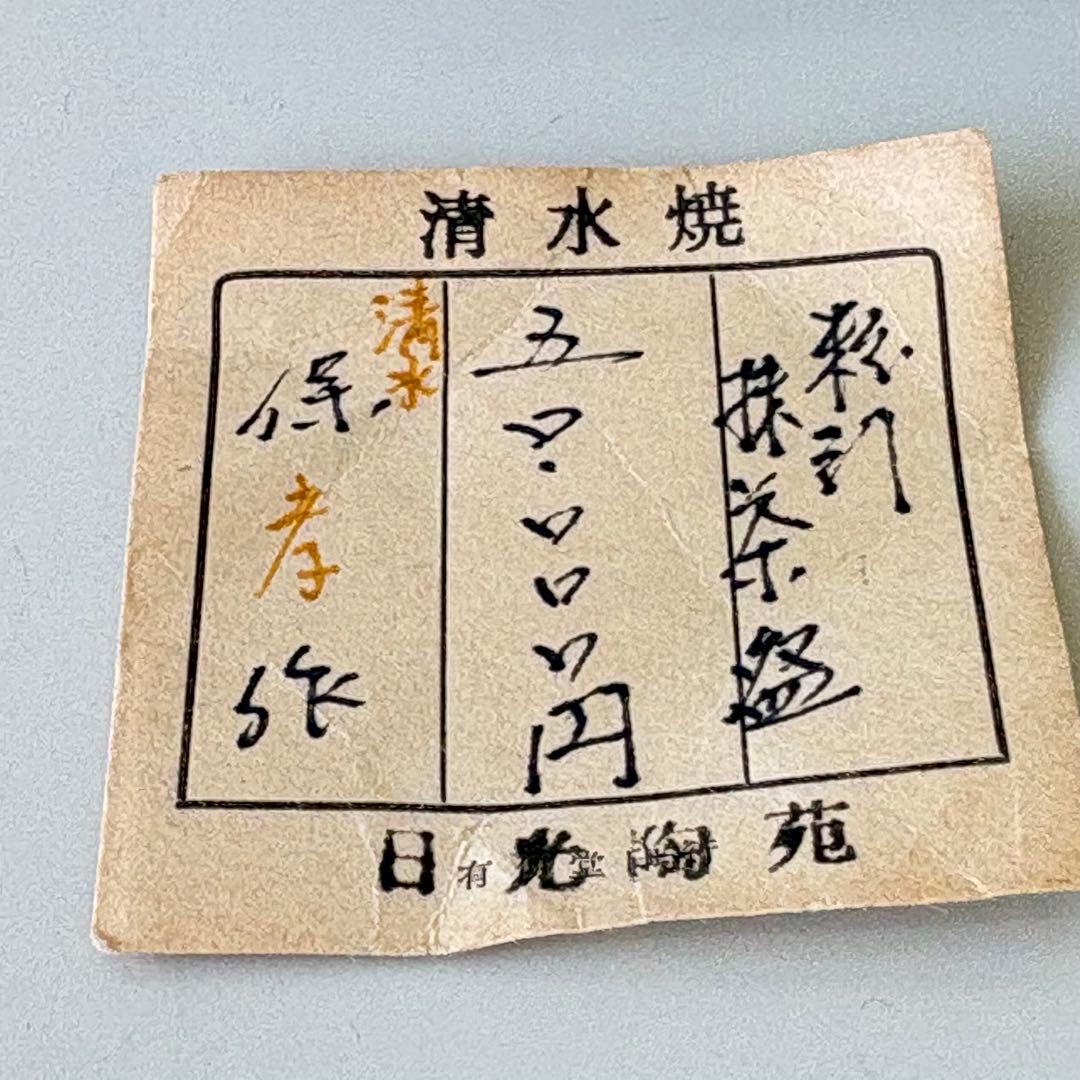 清水焼
粉引
抹茶盌
五〇.〇〇〇円
清水
保孝作
日光陶苑